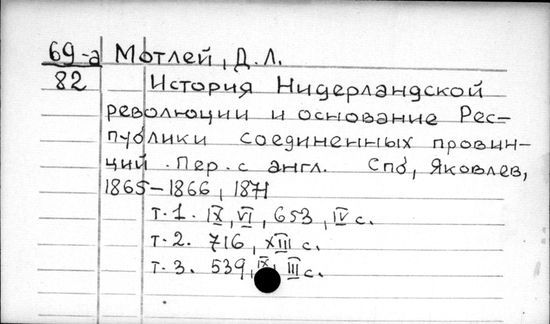 69-а Мотлей, Д.Л.
82 История Нидерландской
революции и основание Рес-
публики соединенных провин-
ций. Пер. с англ. Спб, Яковлев,
1865-1866, 1871
т.1. IX, VI, 653, IV с.
т.2. 716, XIII с.
т.3. 539, IX, III с.